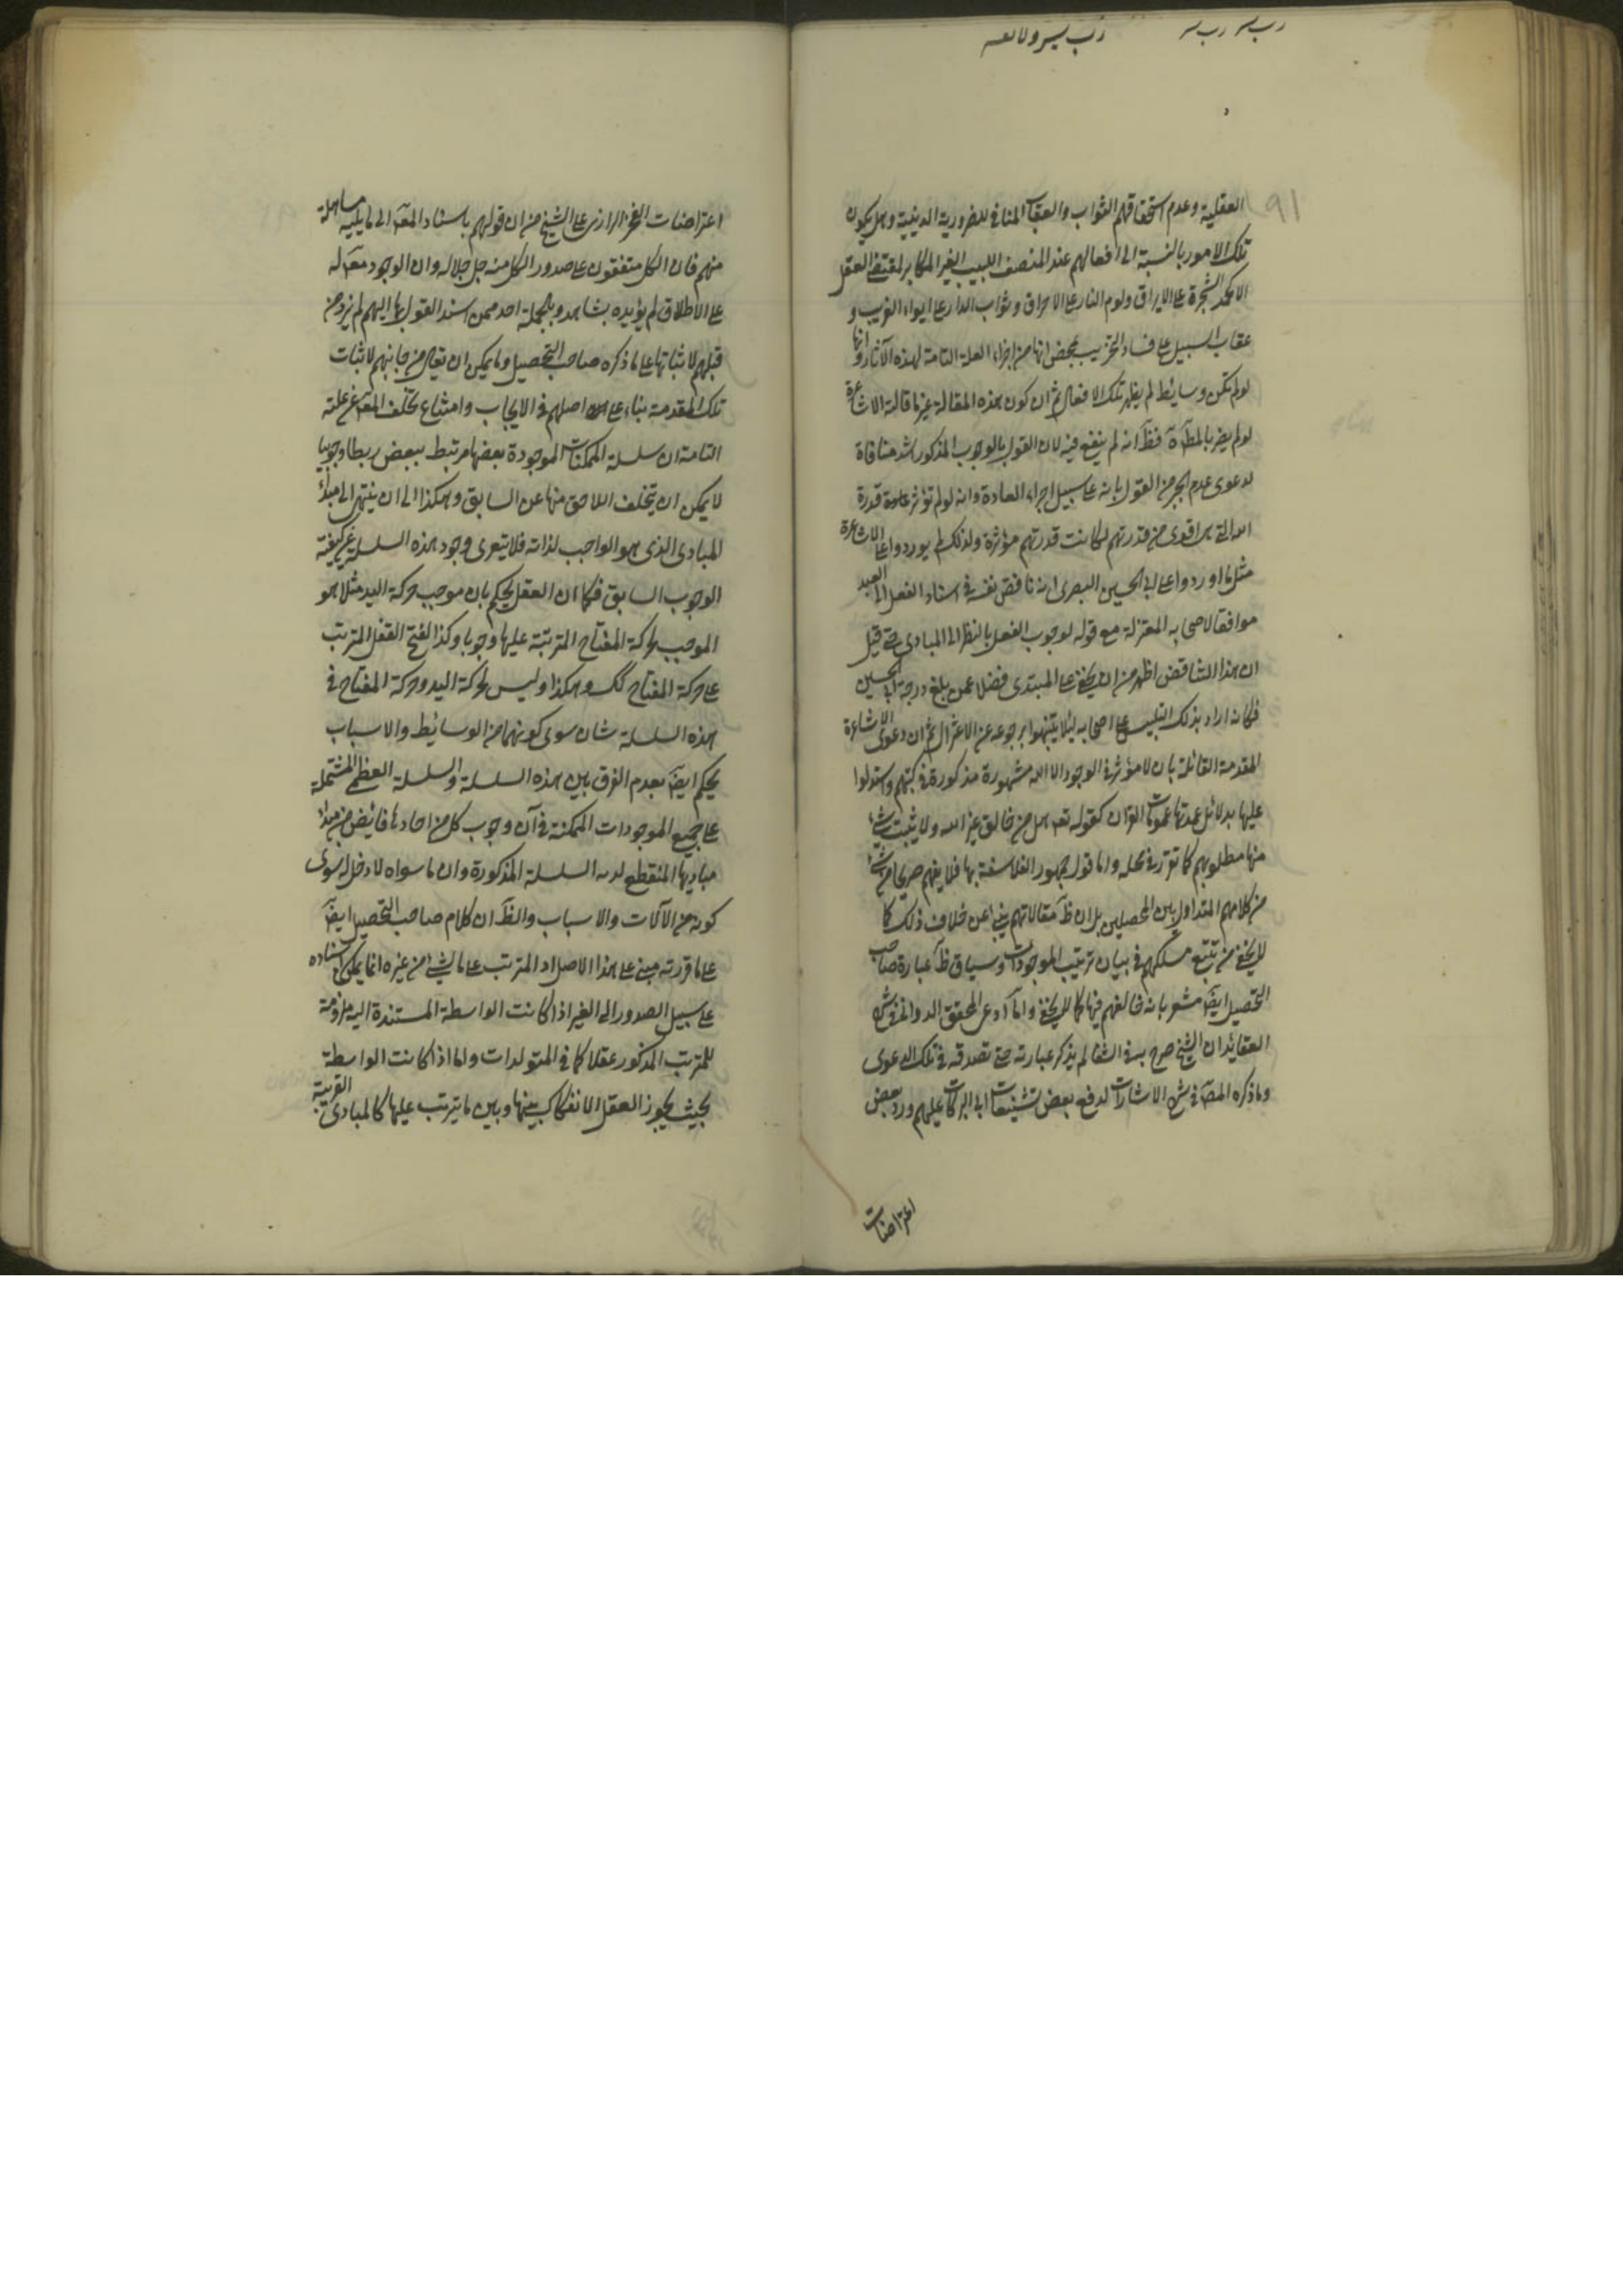 رب يسر رب يسر
رب يسر ولا تعسر
91
العقلية وعدم استحقاقهم الثواب والعقاب المنافى للضرورية الدينية وهل يكون
تلك الامور بالنسبة الى افعالهم عند المنصف اللبيب الغير المكابر لمقتضى العقل
الا كمدح الشجرة على الايراق ولوم النار على الاحراق وثواب الدار على ايواء الغريب و
عقاب السبيل على فساد التخريب بمحض انها من اجزاء العلة التامة لهذه الآثار وانها
لو لم تكن وسايط لم يظهر تلك الافعال ثم ان كون هذه المقالة غير ما قالته الاشاعرة
لو لم يضر بالمطّ فظَ انه لم ينفع فيه لان القول بالوجوب المذكور اشد منافاة
لدعوى عدم الجبر من القول بانه على سبيل اجراء العادة وانه لو لم تؤثر قدرة
الله التى هى اقوى من قدرتهم لكانت قدرتهم مؤثرة ولذلك لم يوردوا على الاشاعرة
مثل ما اوردوا على ابى الحسين البصرى انه ناقض نفسه فى اسناد الفعل الى العبد
موافقا لاصحابه المعتزلة مع قوله لوجوب الفعل بالنظر الى المبادى حتى قيل
ان هذا التناقض اظهر من ان يخفى على المبتدى فضلا عمن بلغ درجة ابى الحسين
فكانه اراد بذلك التلبيس على اصحابه لئلا يتنبهوا برجوعه عن الاعتزال ثم ان دعوى الاشاعرة
المقدمة القائلة بان لا مؤثر فى الوجود الا الله مشهورة مذكورة فى كتبهم واستدلوا
عليها بدلائل عمدتها عمومات القرآن كقوله تعه هل من خالق غير الله ولا يثبت شىء
منها مطلوبهم كما تقرر فى محله واما قول جمهور الفلاسفة بها فلا يفهم صريحا من شىء
من كلامهم المتداول بين المحصلين بل ان ظَ مقالاتهم ينبئ عن خلاف ذلك كما
لا يخفى من تتبع مسلكهم فى بيان ترتيب الموجودات وسياق ظَ عبارة صاحب
التحصيل ايضَ مشعر بانه خالفهم فيها كما لا يخفى واما ادعى المحقق الدوانى فى شرح
العقائد ان الشيخ صرح به فى الشفا لم يذكر عبارته حتى تصدقه فى تلك الدعوى
وما ذكره المصَ فى شرح الاشارات لدفع بعض تشنيعات ابى البركات عليهم ورد بعض
اعتراضات
اعتراضات الفخر الرازى على الشيخ من ان قولهم باسناد المعَه الى ما يليه مساهلة
منهم فان الكل متفقون على صدور الكل منه جل جلاله وان الوجود معَه له
على الاطلاق لم يؤيده بشاهد وبالجملة احد ممن اسند القول بها اليهم لم يزد من
قبلهم لاثباتها على ما ذكره صاحب التحصيل وما يمكن ان يقال من جانبهم لاثبات
تلك المقدمة بناء على اصلهم فى الايجاب وامتناع تخلف المعَه عن علته
التامة ان سلسلة الممكنات الموجودة بعضها مرتبط ببعض ربطا وجوبيا
لا يمكن ان يتخلف اللاحق منها عن السابق وهكذا الى ان ينتهى الى مبدأ
المبادى الذى هو الواجب لذاته فلا يتعرى وجود هذه السلسلة عن كيفية
الوجوب السابق فكما ان العقل يحكم بان موجب حركة اليد مثلا هو
الموجب لحركة المفتاح المترتبة عليها وجوبا وكذا لفتح القفل المترتب
على حركة المفتاح كك وهكذا وليس لحركة اليد وحركة المفتاح فى
هذه السلسلة شان سوى كونهما من الوسائط والاسباب
يحكم ايضَ بعدم الفرق بين هذه السلسلة والسلسلة العظمى المشتملة
على جميع الموجودات الممكنة فى ان وجوب كل من احادها فائض من مبدأ
مباديها المنقطع لديه السلسلة المذكورة وان ما سواه لا دخل له سوى
كونه من الآلات والاسباب والظَ ان كلام صاحب التحصيل ايضَ
على ما قررته مبنى على هذا الاصل اد المترتب على ما لشىء من غيره انما يمكن اسناده
على سبيل الصدور الى الغير اذا كانت الواسطة المستندة اليه ملزومة
للمترتب المذكور عقلا كما فى المتولدات واما اذا كانت الواسطة
بحيث يجوز العقل الانفكاك بينها وبين ما يترتب عليها كالمبادى القريبة